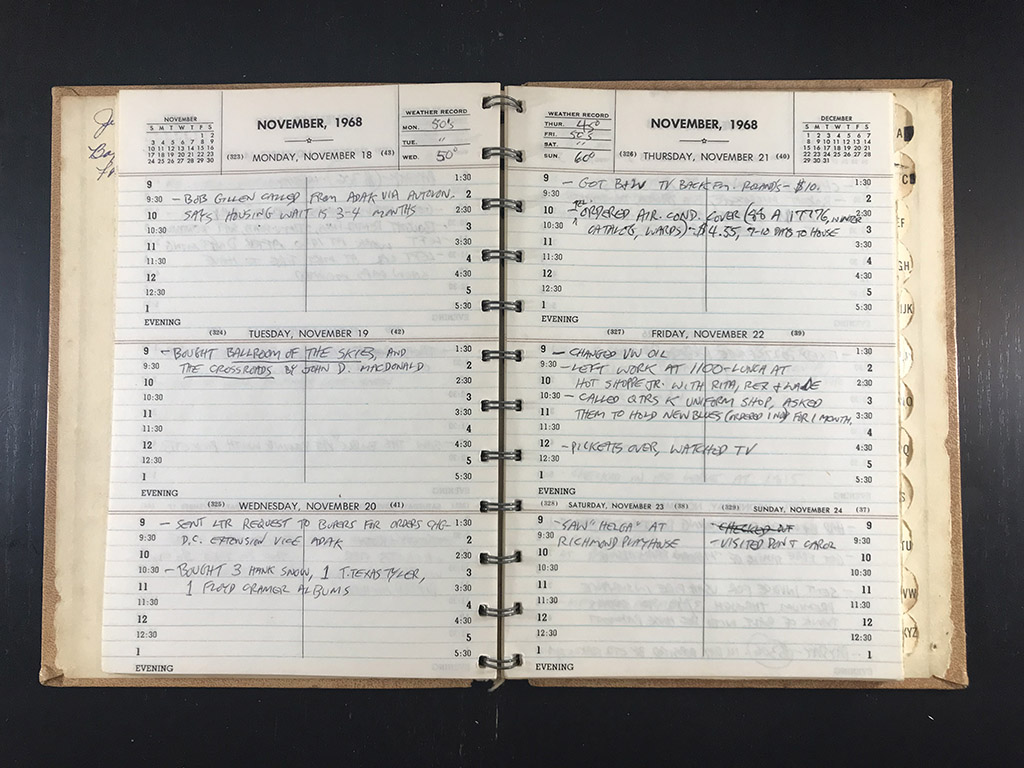 NOVEMBER
S M T W T F S
1 2
3 4 5 6 7 8 9
10 11 12 13 14 15 16
17 18 19 20 21 22 23
24 25 26 27 28 29 30
NOVEMBER, 1968
WEATHER RECORD
MON. 50's
TUE. "
WED. 50°
(323) MONDAY, NOVEMBER 18 (43)
9 1:30
9:30 - BOB GILLEN CALLED FROM ADAK VIA AUTOVON. 2
10 SAYS HOUSING WAIT IS 3-4 MONTHS 2:30
10:30 3
11 3:30
11:30 4
12 4:30
12:30 5
1 5:30
EVENING
(324) TUESDAY, NOVEMBER 19 (42)
9 - BOUGHT BALLROOM OF THE SKIES, AND 1:30
9:30 THE CROSSROADS BY JOHN D. MACDONALD 2
10 2:30
10:30 3
11 3:30
11:30 4
12 4:30
12:30 5
1 5:30
EVENING
(325) WEDNESDAY, NOVEMBER 20 (41)
9 - SENT LTR REQUEST TO BUPERS FOR ORDERS CHG- 1:30
9:30 D.C. EXTENSION VICE ADAK 2
10 2:30
10:30 - BOUGHT 3 HANK SNOW, 1 T. TEXAS TYLER, 3
11 1 FLOYD CRAMER ALBUMS 3:30
11:30 4
12 4:30
12:30 5
1 5:30
EVENING
WEATHER RECORD
THUR. 40°
FRI. 50's
SAT. "
SUN. 60°
NOVEMBER, 1968
DECEMBER
S M T W T F S
1 2 3 4 5 6 7
8 9 10 11 12 13 14
15 16 17 18 19 20 21
22 23 24 25 26 27 28
29 30 31
(326) THURSDAY, NOVEMBER 21 (40)
9 - GOT B&W TV BACK FM. - $10. 1:30
9:30 TEL. 2
10 - ORDERED AIR. COND. COVER (88 A 17776, WINTER 2:30
10:30 CATALOG, WARDS) - $4.55, 7-10 DAYS TO HOUSE 3
11 3:30
11:30 4
12 4:30
12:30 5
1 5:30
EVENING
(327) FRIDAY, NOVEMBER 22 (39)
9 - CHANGED VW OIL 1:30
9:30 - LEFT WORK AT 1100 - LUNCH AT 2
10 HOT SHOPPE JR. WITH RITA, REX & WADE 2:30
10:30 - CALLED QTRS K UNIFORM SHOP, ASKED 3
11 THEM TO HOLD NEW BLUES (ORDERED) FOR 1 MONTH. 3:30
11:30 4
12 - PICKETS OVER, WATCHED TV 4:30
12:30 5
1 5:30
EVENING
(328) SATURDAY, NOVEMBER 23 (38) (329) SUNDAY, NOVEMBER 24 (37)
9 - SAW "HELGA" AT CHECKED OUT 9
9:30 RICHMOND PLAYHOUSE - VISITED DON & CAROL 9:30
10 10
10:30 10:30
11 11
11:30 11:30
12 12
12:30 12:30
1 1
EVENING
A
C
EF
GH
IJK
Q
S
TU
VW
XYZ